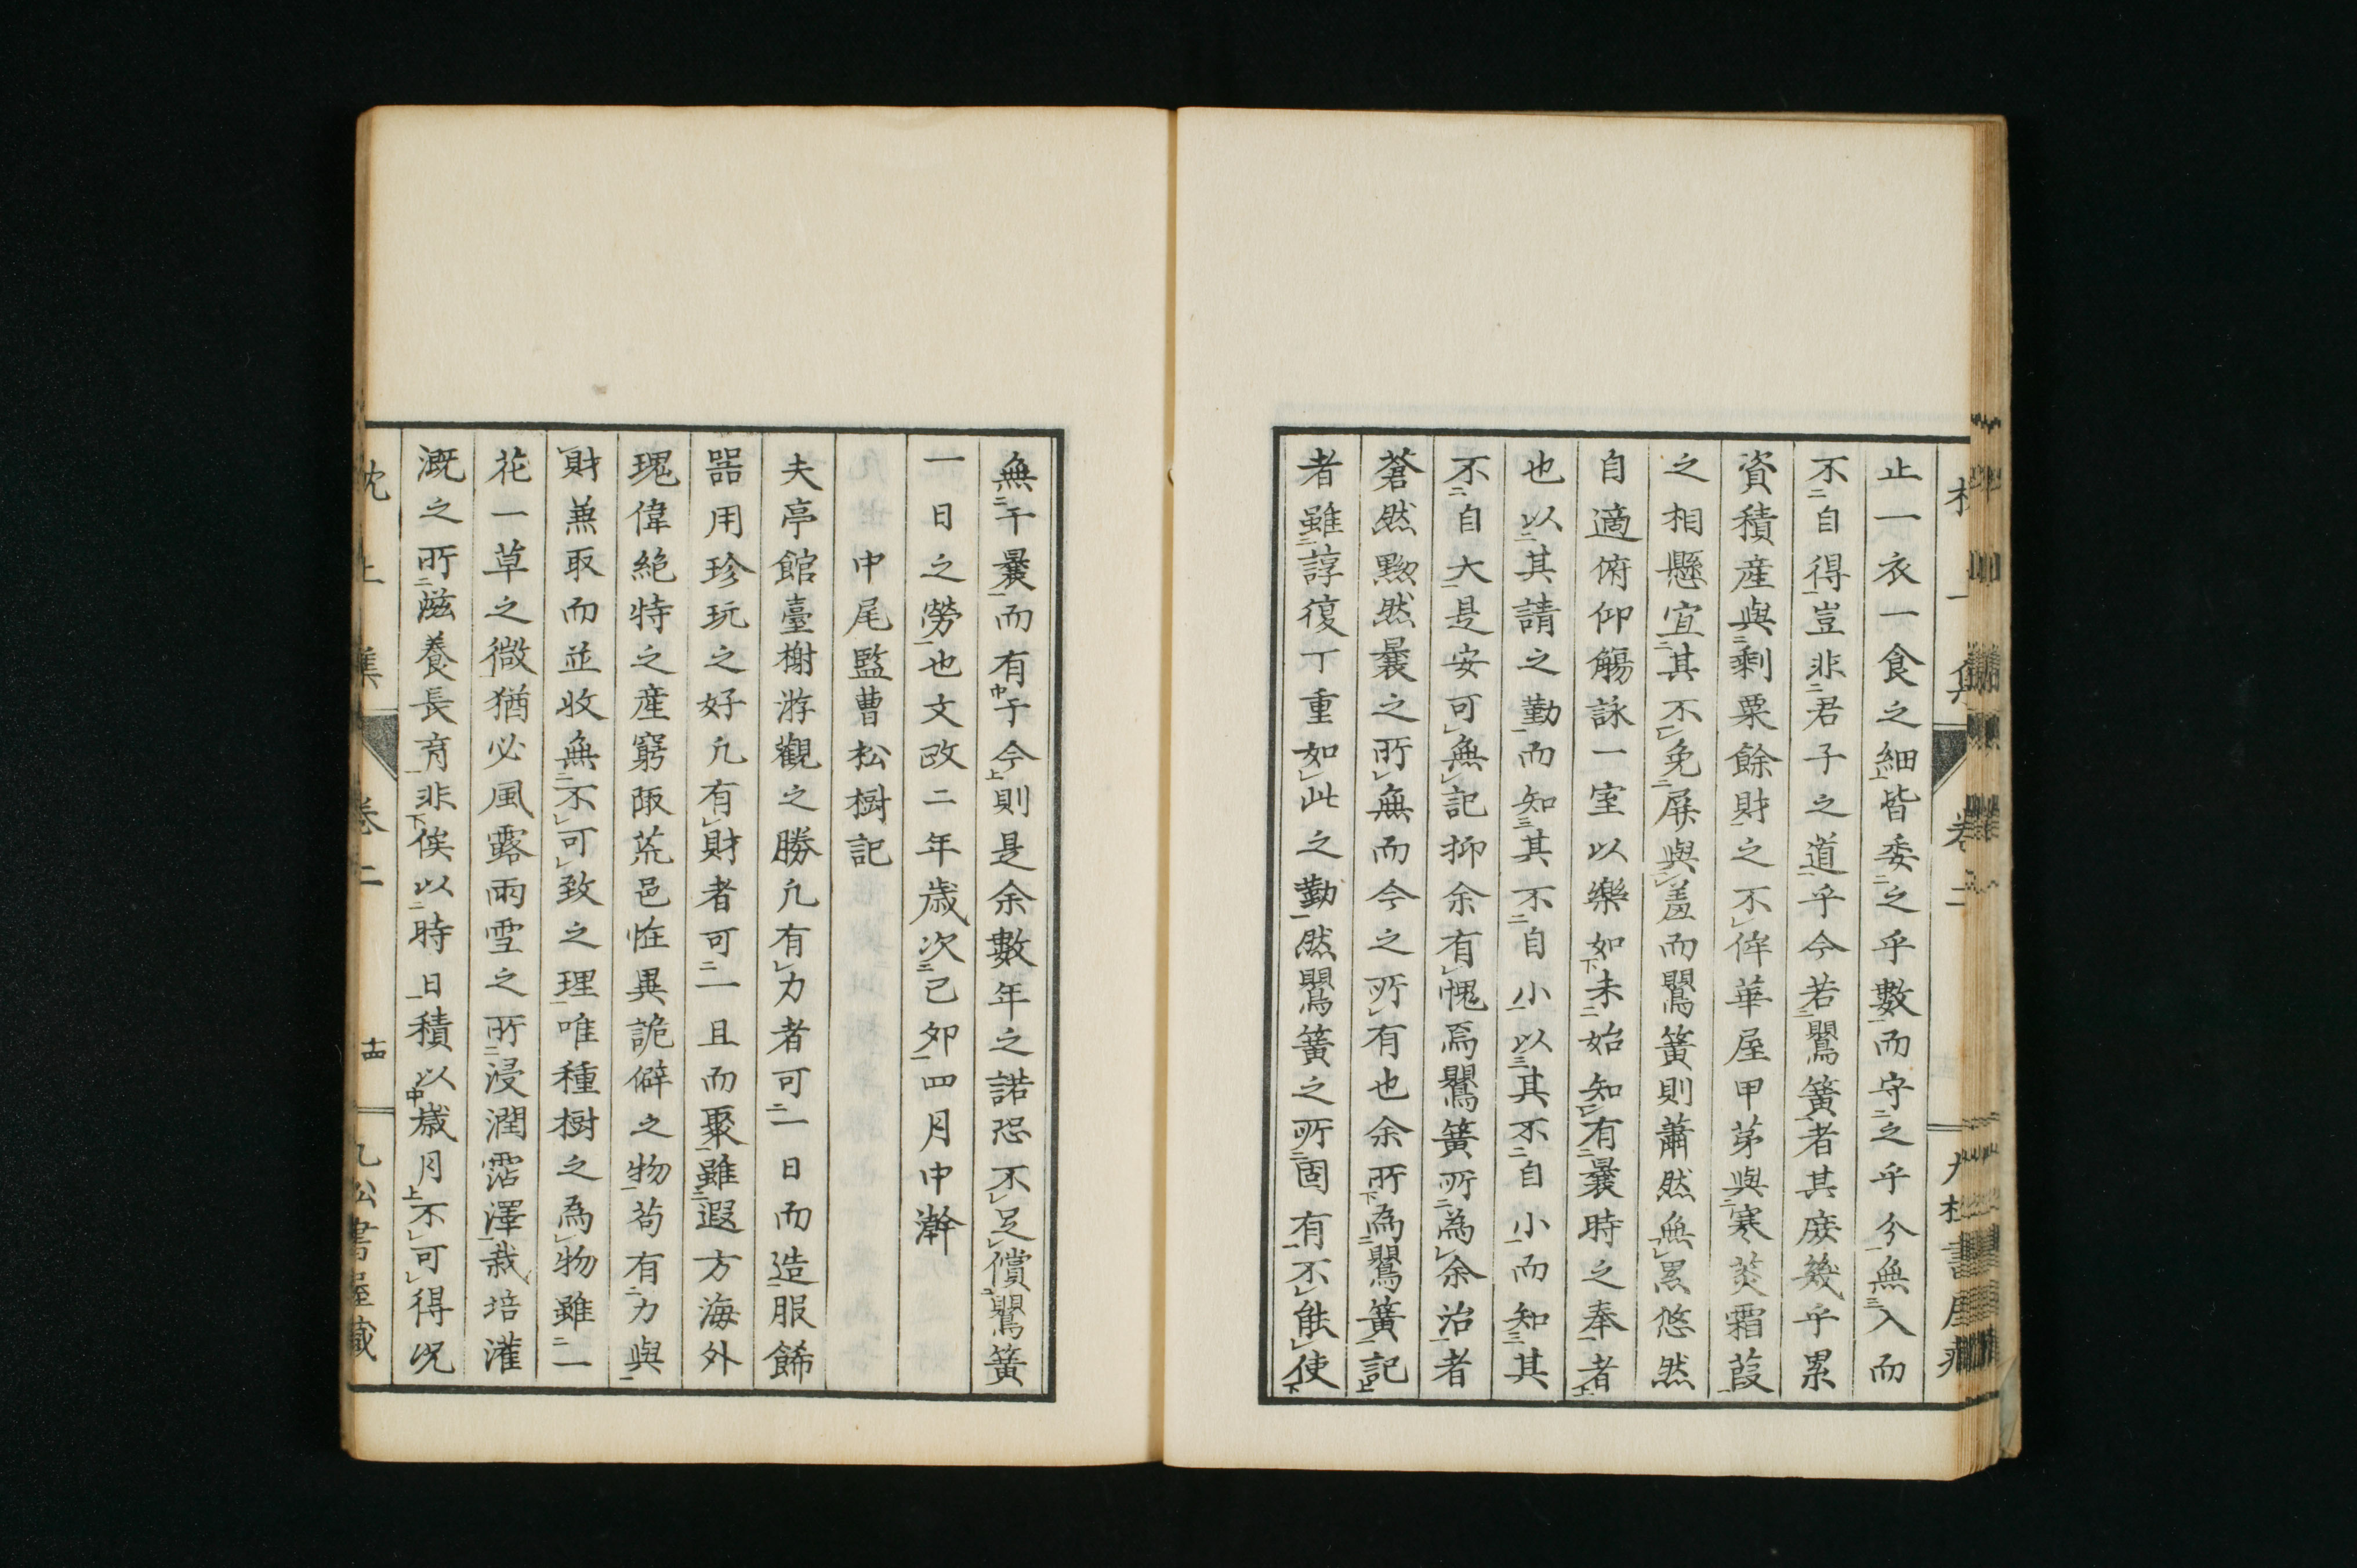 止一衣一食之細皆委之乎數而守之乎兮無入而
不自得豈非君子之道乎今若鷽簧者其庶幾乎累
資積產與剩粟餘財之不侔華屋甲苐與寒茭霜葭
之相懸宜其不免屏與羞而鷽簧則蕭然無累悠然
自適俯仰觴詠一室以樂如未始知有曩時之奉者
也以其請之勤而知其不自小以其不自小而知其
不自大是安可無記抑余有愧焉鷽簧所為余治者
蒼然黝然曩之所無而今之所有也余所為鷽簧記
者雖諄復丁重如此之勤然鷽簧之所固有不能使
無于曩而有于今則是余數年之諾恐不足償鷽簧
一日之勞也文政二年歲次己卯四月中澣
中尾監曹松樹記
夫亭館臺榭游觀之勝凡有力者可一日而造服餙
噐用珍玩之好凡有財者可一且而聚雖遐方海外
瑰偉絶特之產窮陬荒邑恠異詭僻之物苟有力與
財兼取而並收無不可致之理唯種樹之為物雖一
花一草之微猶必風露雨雪之所浸潤霑澤栽培灌
溉之所滋養長育非俟以時日積以歲月不可得况
枕上集 卷二 十四